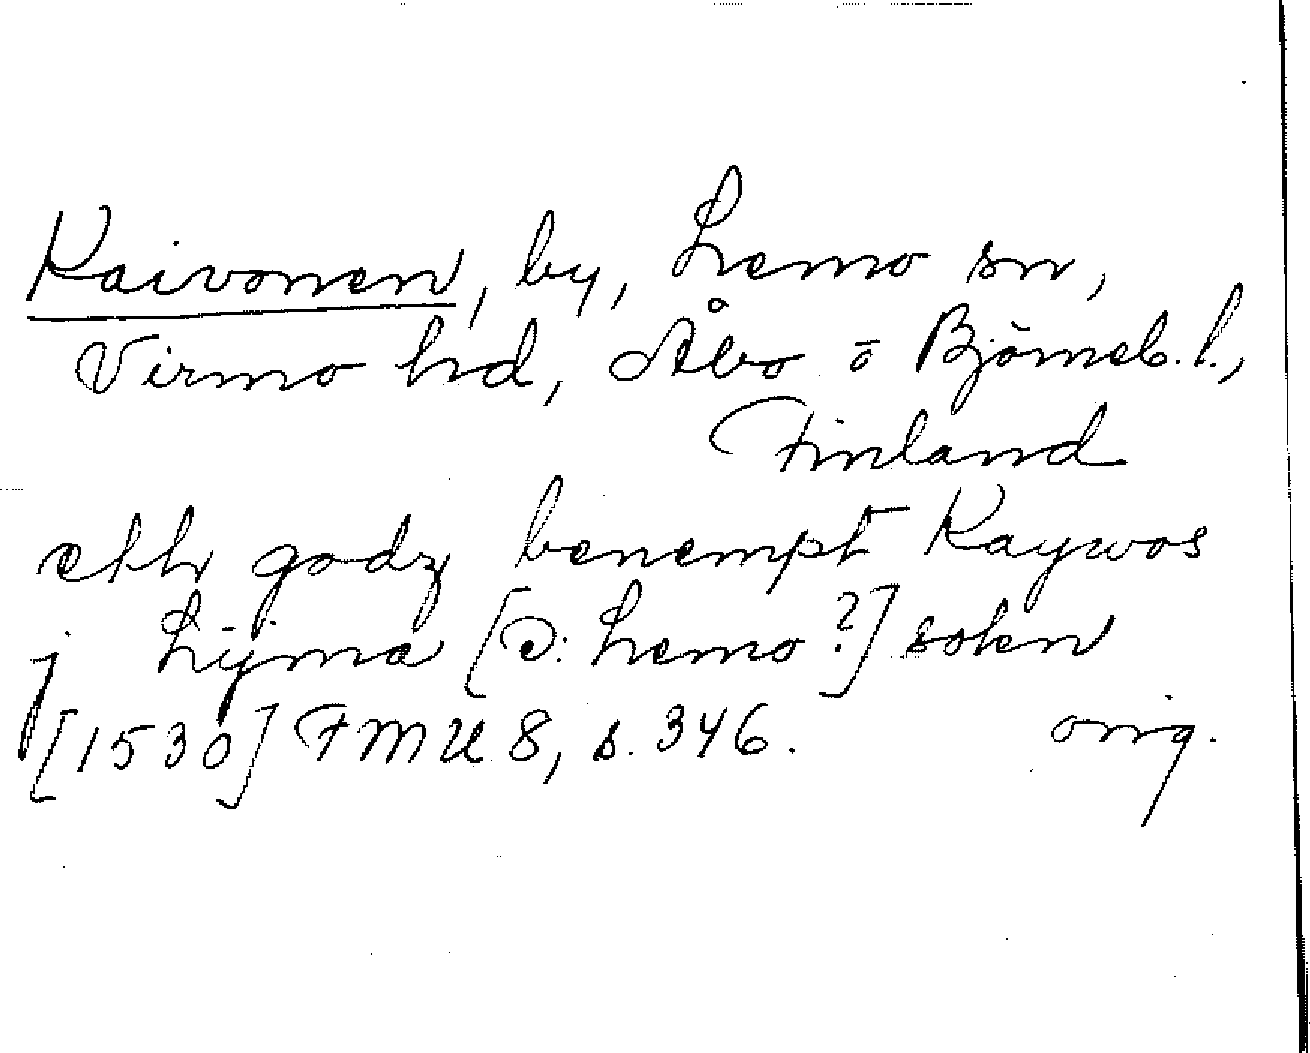 Kaivonen, by, Lemo sn,
Virmo hd, Åbo o Björneb. l.,
Finland
etth godz benempt Kaywos
j Lijma [ɔ: Lemo?] soken
[1530] FMU 8, s. 346. orig.